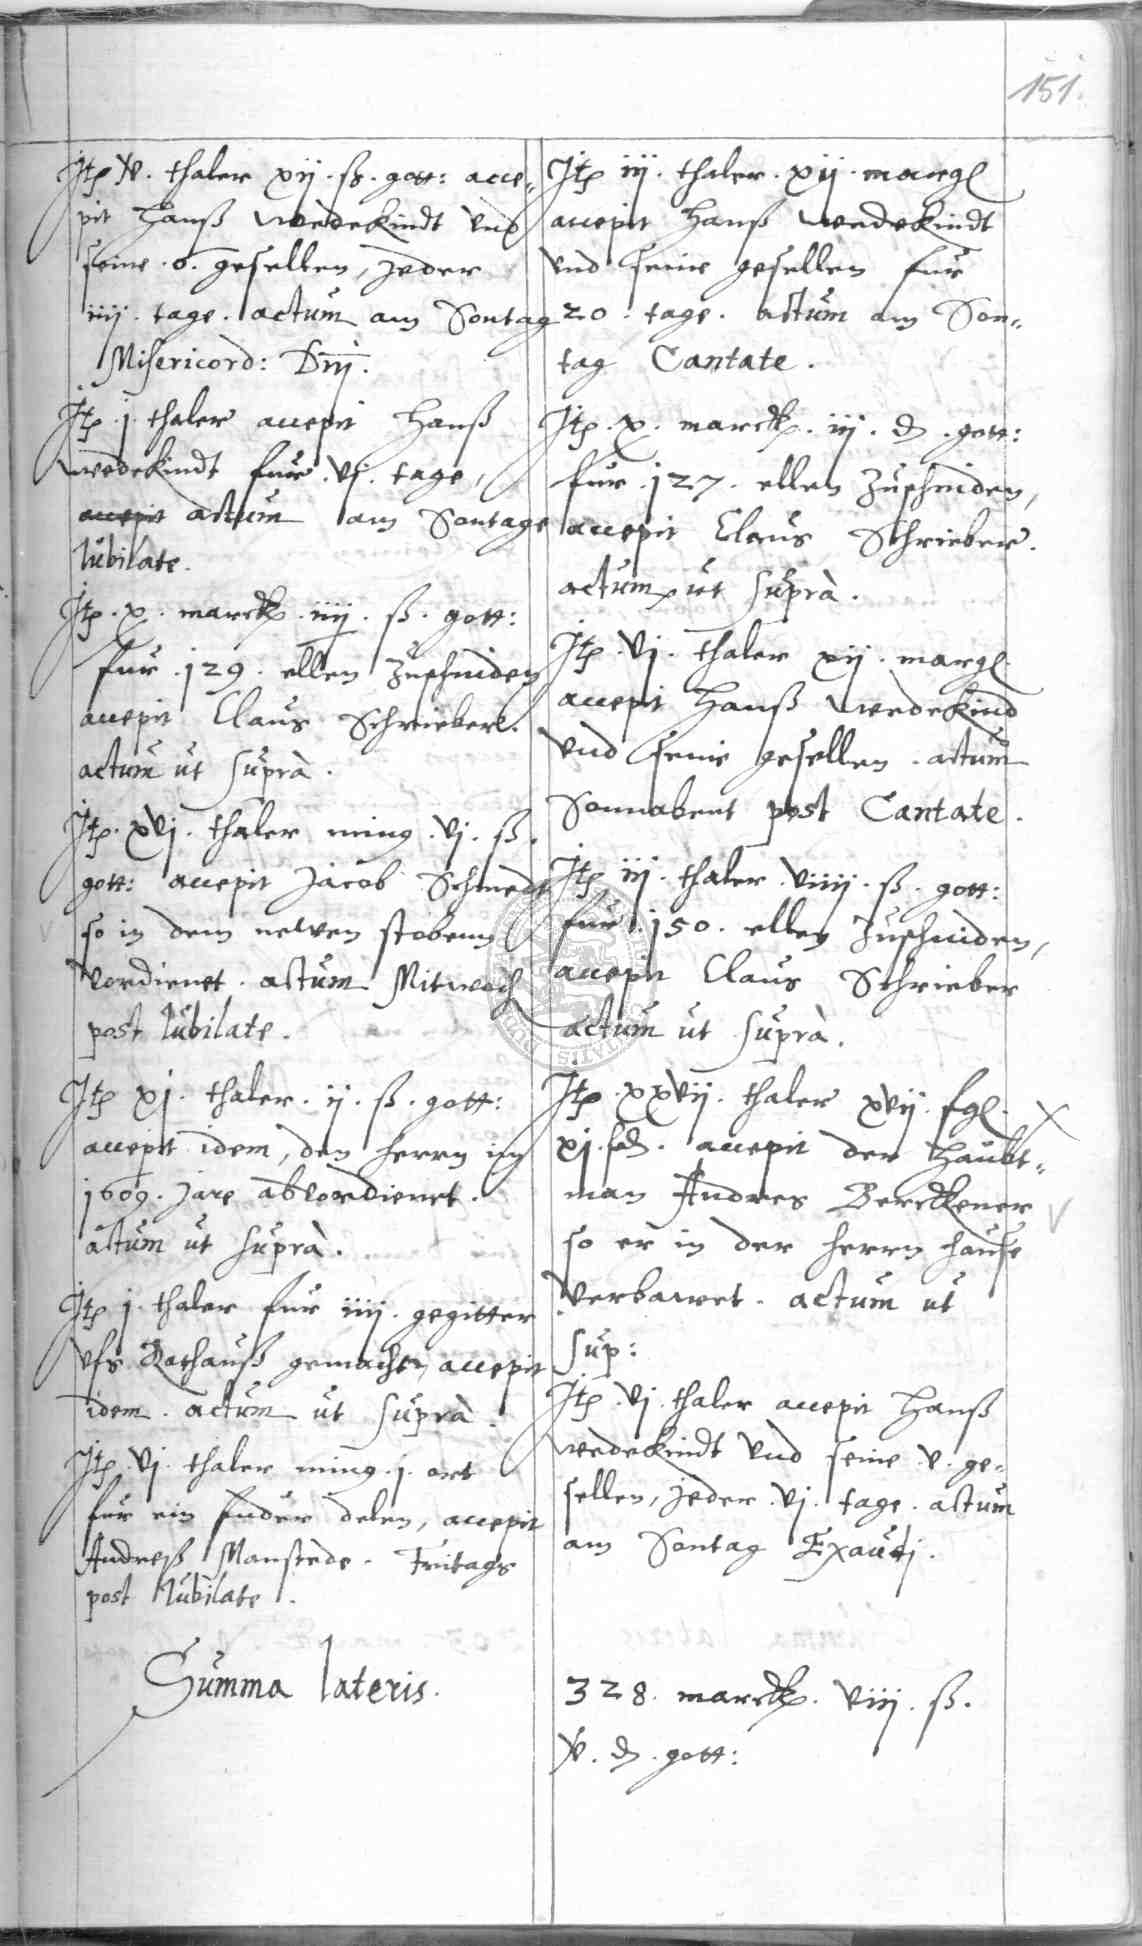 151.
Itp v. thaler xij. ß. gott: acce„
pit Hanß wedekindt vnd
seine .6. gesellen, jeder
iiij. tage. actum am Sontag
Misericord: Dnj.
Itp .j. thaler accepit Hanß
wedekindt fur .vj. tage,
accepit actum am Sontage
Iubilate.
Itp .x. marck .iiij. ß. gott:
fur .129. ellen zuschniden
accepit Claus Schrieber.
actum ut suprà.
Itp. xvj. thaler ming .vj. ß.
gott: accepit Jacob Schmedt
so in dem newen stobenn
vordienet. actum Mitwoch
post Iubilate.
Itp xj. thaler. ij. ß. gott:
accepit idem, den herrn im
1609. Jare abvordienet.
actum ut suprà.
Itp j. thaler fur iiij. gegitter
vfs Rathauß gemacht, accepit
idem. actum ut suprà.
Itp .vj. thaler ming .j. ort
fur ein fuder delen, accepit
Andreß Manstede. Fritags
post Iubilate.
Summa lateris.
Itp iij. thaler. xij. margl
accepit Hanß wedekindt
vnd seine gesellen fur
20. tage. actum am Son„
tag Cantate.
Itp .x. marck. iij. d. gott:
fur .127. ellen zuschniden,
accepit Claus Schrieber.
actum ut suprà.
Itp .vj. thaler xij. margl.
accepit Hanß wedekind
vnd seine gesellen. actum
Sonnabent post Cantate.
Itp iij. thaler viiij. ß. gott:
fur .150. ellen zuschniden,
accepit Claus Schrieber
actum ut suprà.
Itp .xxvij. thaler xvij. fgl.
xj. accepit der Haubt„
man Andres Berckener
so er in der herrn hause
verbawet. actum ut
sup:
Itp .vj. thaler accepit Hanß
wedekindt vnd seine .v. ge„
sellen, jeder .vj. tage. actum
am Sontag Exaudj.
328. marck. viij. ß.
v. d. gott: